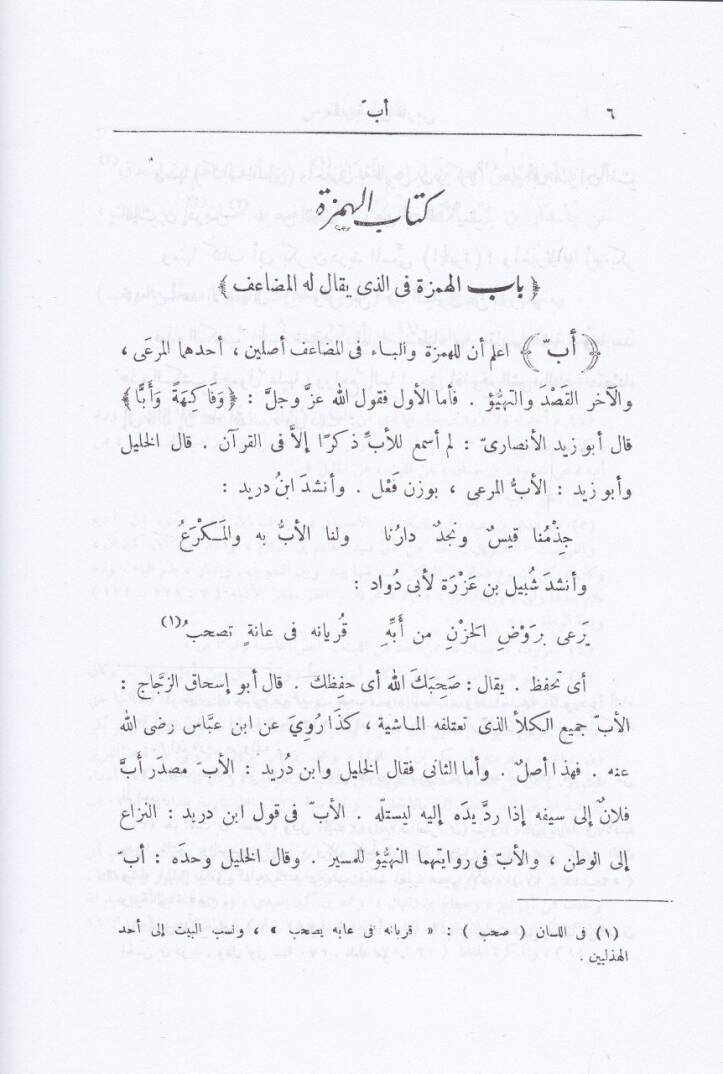 ٦
أبّ
كتاب الهمزة
﴿ باب الهمزة فى الذى يقال له المضاعف ﴾
﴿ أبّ ﴾ اعلم أن للهمزة والباء فى المضاعف أصلين ، أحدهما المرعَى ،
والآخر القصْد والتهيُّؤ . فأما الأول فقول الله عز وجلَّ : ﴿ وَفَاكِهَةً وَأَبًّا ﴾
قال أبو زيد الأنصارىّ : لم أسمع للأبِّ ذكرًا إلاَّ فى القرآن . قال الخليل
وأبو زيد : الأبُّ المرعى ، بوزن فَعْل . وأنشدَ ابنُ دريد :
جِذْمُنا قيسٌ ونجدٌ دارُنا ولنا الأبُّ به والمَكْرَعُ
وأنشدَ شُبيل بن عَزْرَة لأبى دُواد :
يَرعى بروْضِ الحَزْنِ من أَبِّهِ قُريانه فى عانةٍ تصحبُ(١)
أى تحفظ . يقال : صَحِبَكَ الله أى حفِظك . قال أبو إسحاق الزَّجاج :
الأبّ جميع الكلأ الذى تعتلفه الماشية ، كذَا رُوِيَ عن ابن عبَّاس رضى الله
عنه . فهذا أصلٌ . وأما الثانى فقال الخليل وابن دُريد : الأب مصدَر أبَّ
فلانٌ إلى سيفه إذا ردَّ يدَه إليه ليستلّه . الأبّ فى قول ابن دريد : النزاع
إلى الوطن ، والأبّ فى روايتهما التهيُّؤ للمسير . وقال الخليل وحدَه : أبّ
(١) فى اللسان ( صحب ) : « قربانه فى عابه يصحب » ، ونسب البيت إلى أحد
الهذليين .